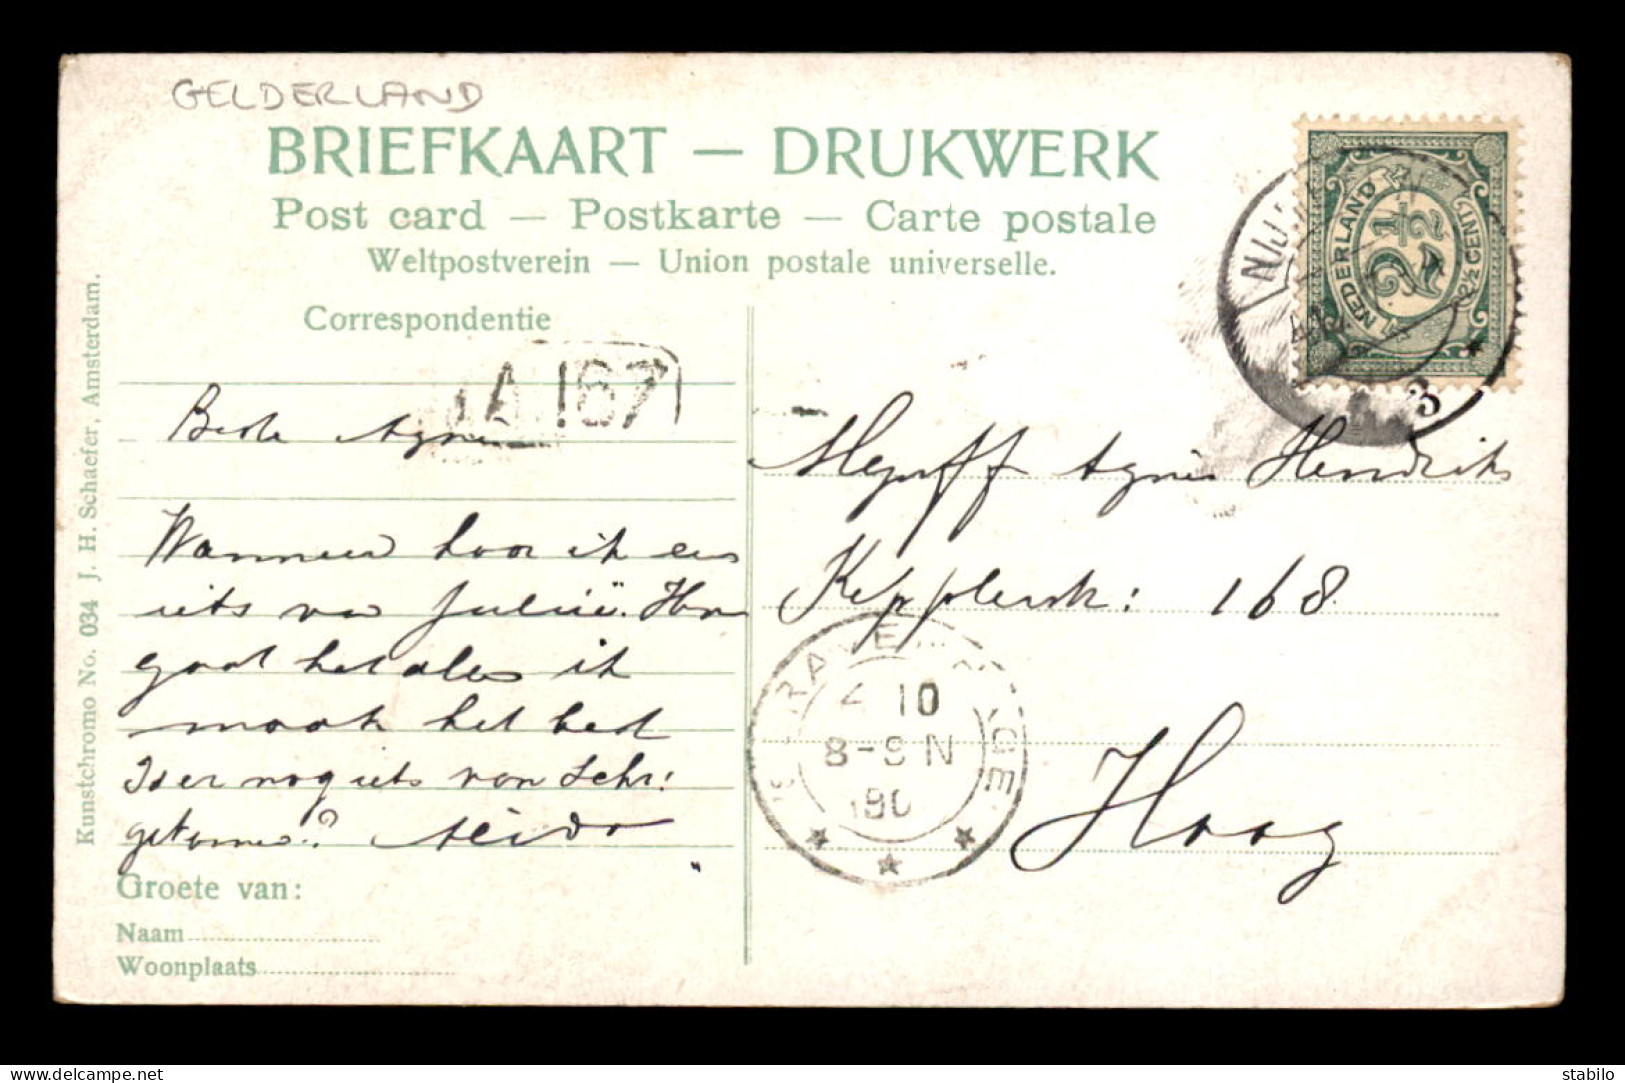 GELDERLAND
BRIEFKAART — DRUKWERK
Post card — Postkarte — Carte postale
Weltpostverein — Union postale universelle.
Correspondentie
A 167
Beste Agnes
Wanneer hoor ik eens
iets van Julië. Hoe
gaat het alles ik
maak het best
Is er nog iets van Schr:
gekomen? Aleida
Groete van:
Naam
Woonplaats
Kunstchromo No. 034 J. H. Schaefer, Amsterdam.
NEDERLAND
2½
2½ CENT
NIJ
3
Mejuff Agnes Hendriks
Kepplerstr: 168
Haag
'S-GRAVENHAGE
4 10
8-9 N
190
delcampe.net
stabilo